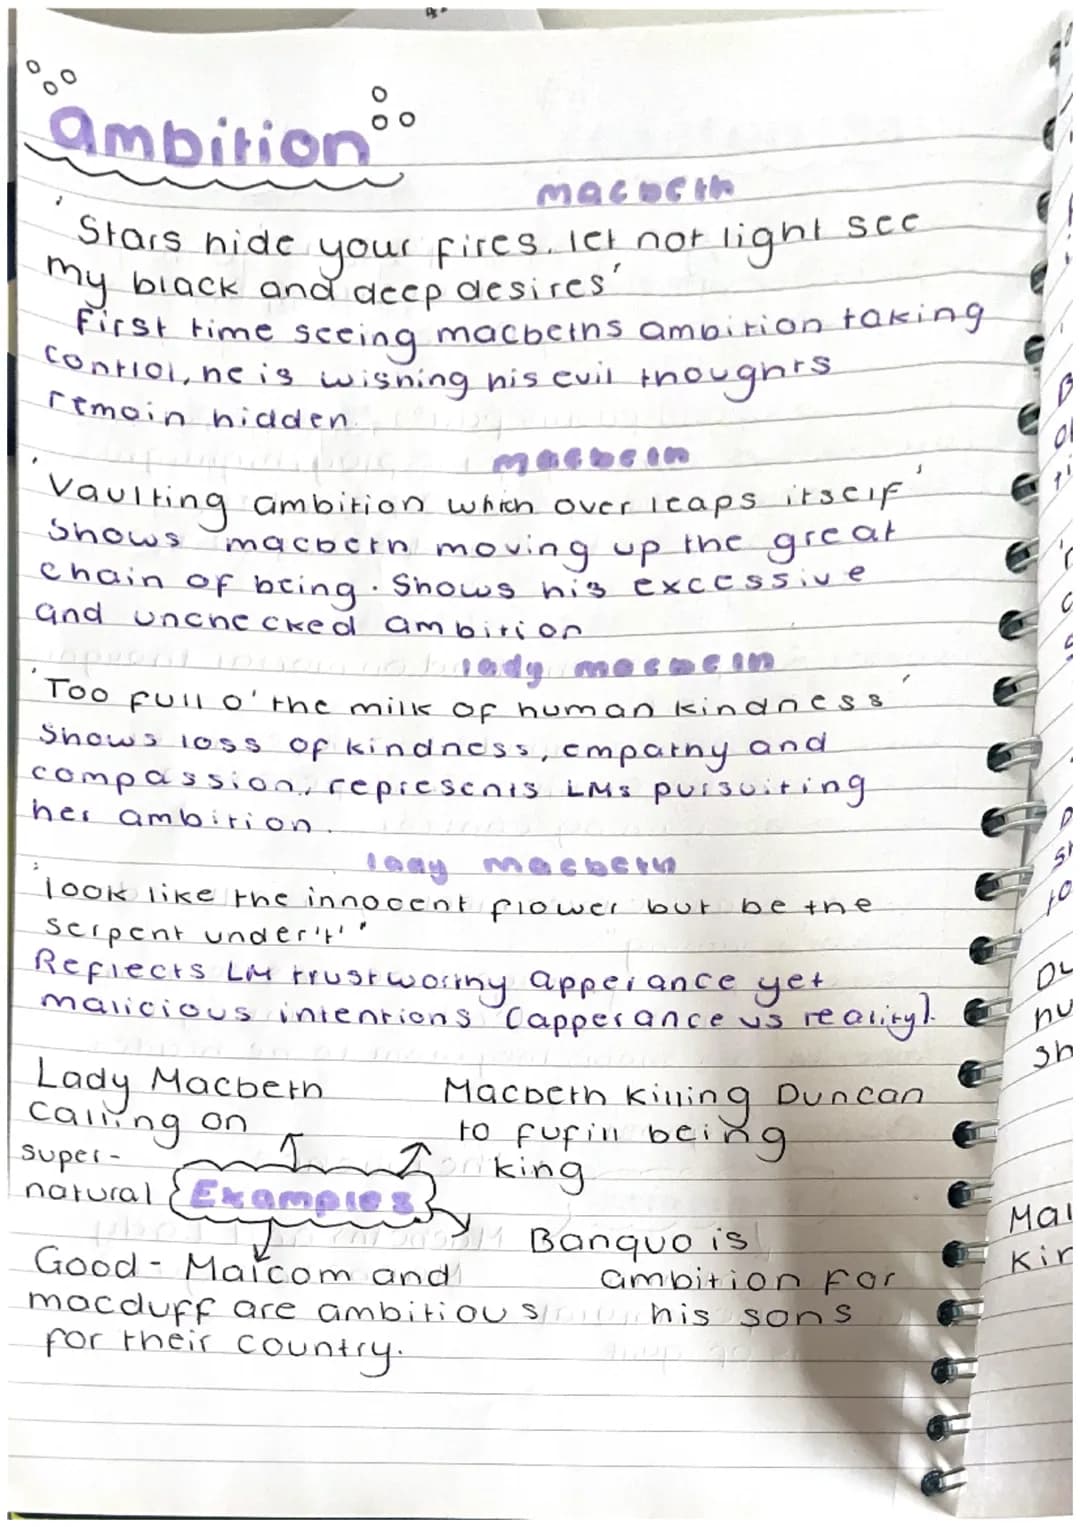 ambition
macbeth
'Stars hide your fires. let not light see
my black and deep desires'
first time seeing macbeths ambition taking
control, he is wishing his evil thoughts
remain hidden.
macbeth
'Vaulting ambition which over leaps itself'
Shows macbeth moving up the great
chain of being. Shows his excessive
and unchecked ambition
lady macbeth
'Too full o' the milk of human kindness'
Shows loss of kindness, empathy and
compassion, represents LMs pursuiting
her ambition.
lady macbeth
'look like the innocent flower but be the
serpent under't'
Reflects LM trustworthy apperance yet
malicious intentions (apperance vs reality).
Lady Macbeth
calling on
super-
natural
Macbeth killing Duncan
to fufill being
king
Examples
Banquo is
ambition for
his sons
Good - Malcom and
macduff are ambitious
for their country.